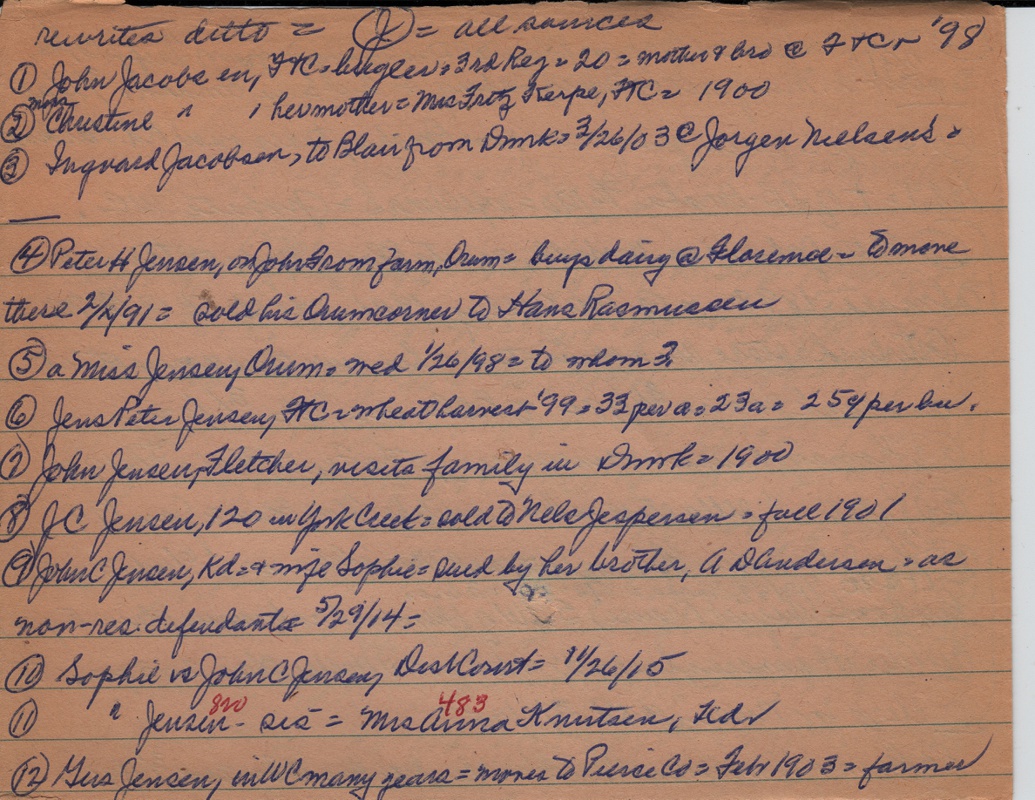 rewrites ditto = (J) = all sources
① John Jacobsen, FtC = bugler = 3rd Reg = 20 = mother & bro @ FtC '98
② Mrs Christine " , her mother = Mrs Fritz Kerpe, FtC = 1900
③ Ingvard Jacobsen, to Blair from Dmrk = 3/26/03 @ Jorgen Nielsen's =
—
④ Peter H Jensen, on John From farm, Orum = buys dairy @ Florence = to move
there 2/x/91 = sold his Orum corner to Hans Rasmussen
⑤ a Miss Jensen, Orum = wed 1/26/98 = to whom?
⑥ Jens Peter Jensen, FtC = wheat harvest '99 = 33 per a = 23a = 759 per bu.
⑦ John Jensen, Fletcher, visits family in Dmrk = 1900
⑧ J C Jensen, 120 in York Creek = sold to Nels Jespersen = fall 1901
⑨ John C Jensen, Kd = & wife Sophie = sued by her brother, A D Anderson = as
non-res. defendants = 5/29/14 =
⑩ Sophie vs John C Jensen, Dist Court = 11/26/15
820 483
⑪ " Jensen - sis = Mrs Anna Knutsen,
⑫ Gus Jensen, in WC many years = moves to Pierce Co = Feb 1903 = farmer